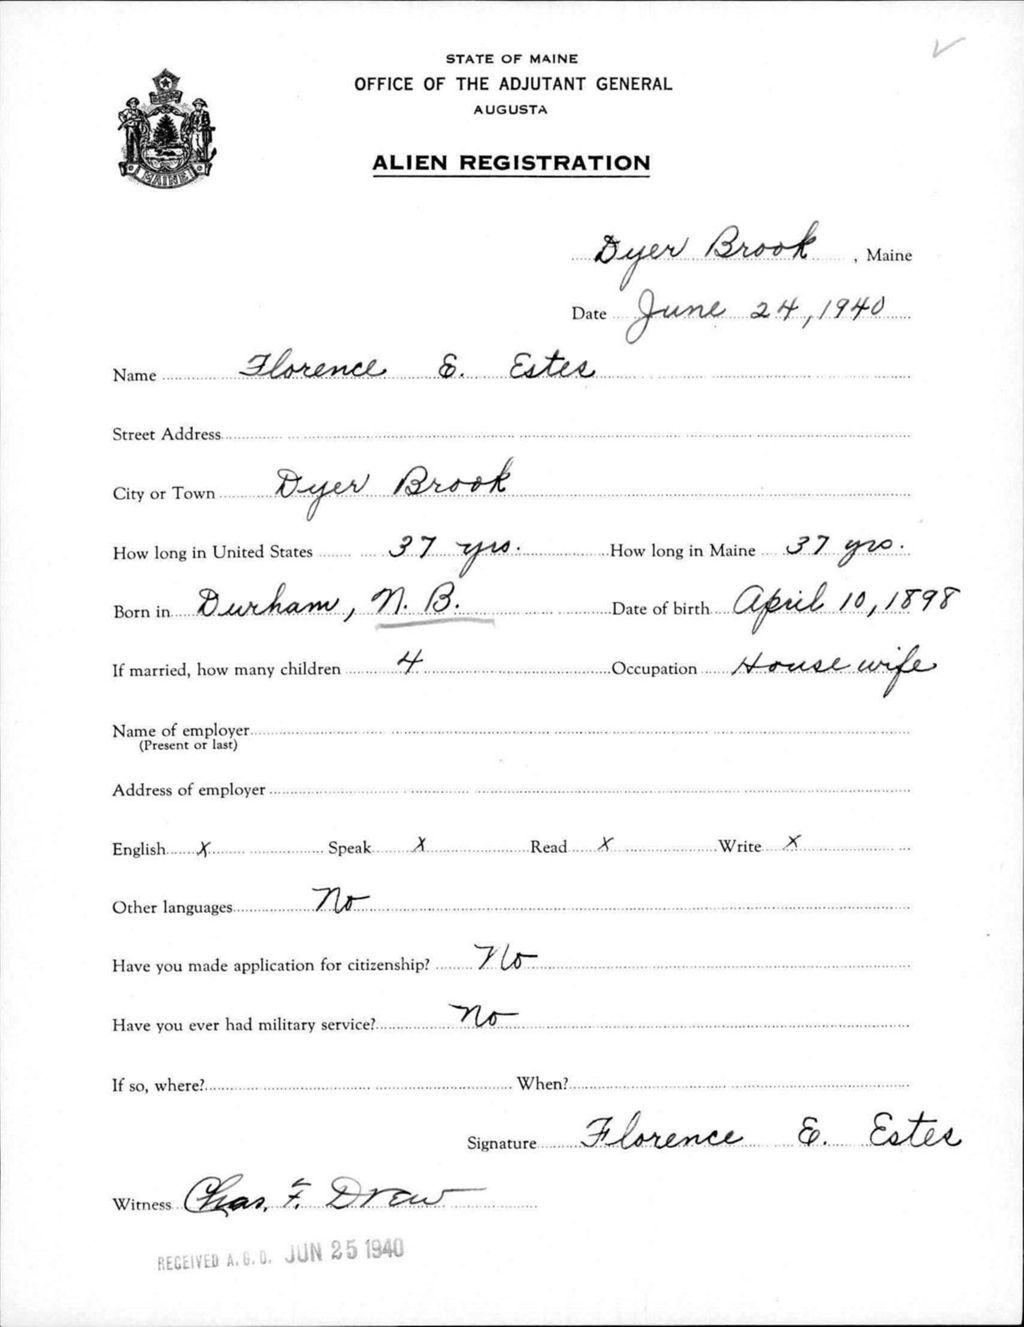 STATE OF MAINE
OFFICE OF THE ADJUTANT GENERAL
AUGUSTA
ALIEN REGISTRATION
MAINE
Dyer Brook, Maine
Date June 24, 1940
Name Florence E. Estes
Street Address
City or Town Dyer Brook
How long in United States 37 yrs. How long in Maine 37 yrs.
Born in Durham, N. B. Date of birth April 10, 1898
If married, how many children 4 Occupation House wife
Name of employer
(Present or last)
Address of employer
English X Speak X Read X Write X
Other languages No
Have you made application for citizenship? No
Have you ever had military service? No
If so, where? When?
Signature Florence E. Estes
Witness Chas. F. Drew
RECEIVED A.G.O. JUN 25 1940